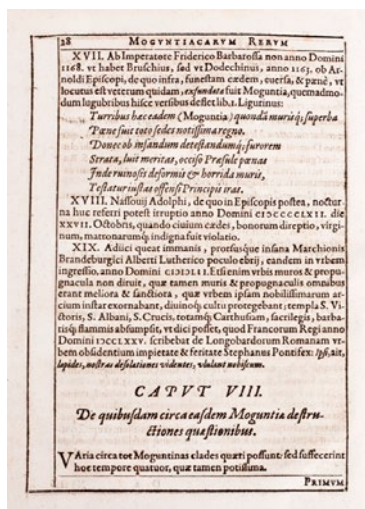 28 MOGVNTIACARVM RERVM
XVII. Ab Imperatore Friderico Barbarossa non anno Domini
1168. vt habet Bruschius, sed vt Dodechinus, anno 1163. ob Ar-
noldi Episcopi, de quo infra, funestam cædem, euersa, & pænè, vt
locutus est veterum quidam, exfundata fuit Moguntia, quemadmo-
dum lugubribus hisce versibus deflet lib.1. Ligurinus:
Turribus hæc eadem (Moguntia) quondã murisq; superba
Pæne suit toto sedes notissima regno.
Donec ob infandum detestandumq; furorem
Strata, luit meritas, occiso Præsule pœnas
Inde ruinosis deformis & horrida muris,
Testatur iustas offensi Principis iras.
XVIII. Nassouij Adolphi, de quo in Episcopis postea, noctur-
na huc referri potest irruptio anno Domini CIↃCCCCLXII. die
XXVII. Octobris, quando ciuium cædes, bonorum direptio, virgi-
num, matronarumq; indigna fuit violatio.
XIX. Adiici queat immanis, prorsusque insana Marchionis
Brandeburgici Alberti Lutherico poculo ebrij, eandem in vrbem
ingressio, anno Domini CIↃIↃLII. Etsi enim vrbis muros & propu-
gnacula non diruit, quæ tamen muris & propugnaculis omnibus
erant meliora & sanctiora, quæ vrbem ipsam nobilissimarum ar-
cium instar exornabat, diuinoq; cultu protegebant; templa S. Vi-
ctoris, S. Albani, S. Crucis, totamq; Carthusiam, sacrilegis, barba-
risq; flammis absumpsit, vt dici posset, quod Francorum Regi anno
Domini IↃCCLXXV. scribebat de Longobardorum Romanam vr-
bem obsidentium impietate & feritate Stephanus Pontifex: Ipsi, ait,
lapides, nostras desolationes videntes, vlulant nobiscum.
CAPVT VIII.
De quibusdam circa easdem Moguntiæ destru-
ctiones quæstionibus.
VAria circa tot Moguntinas clades quæri possunt: sed suffecerint
hoc tempore quatuor, quæ tamen potissima.
PRIMVM